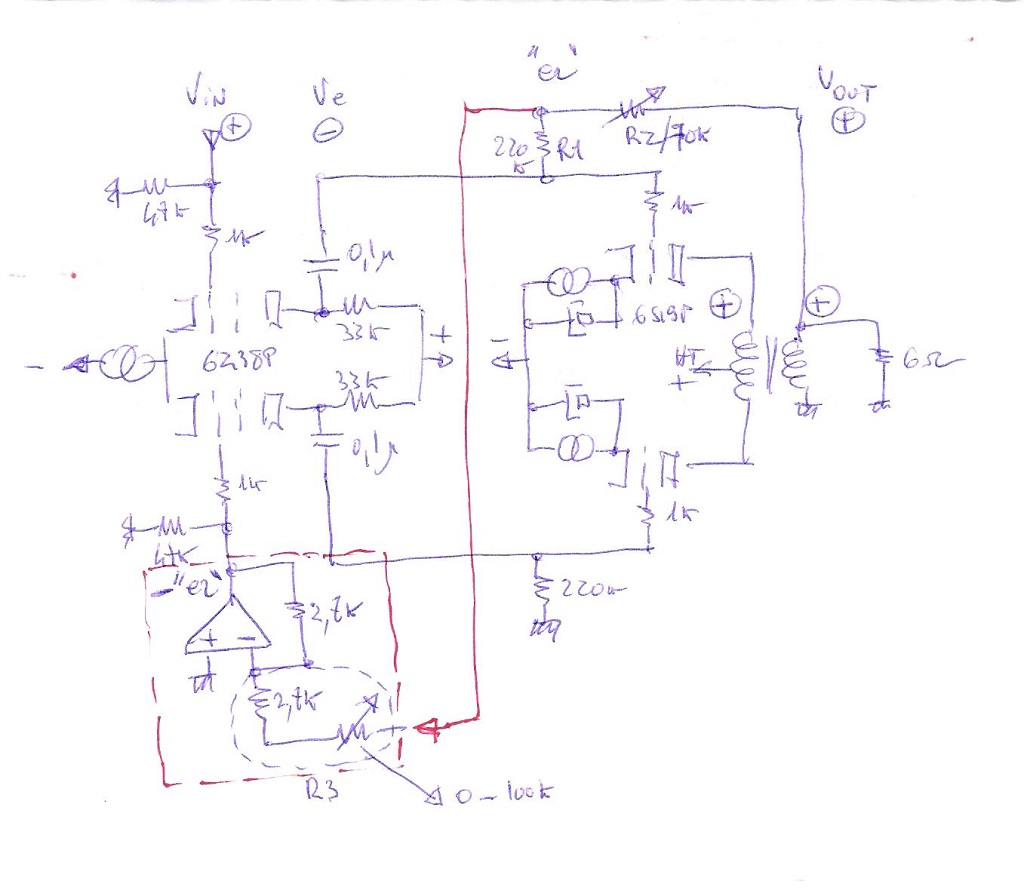 "er"
Vin
Ve
VOUT
+
-
+
220
K
R1
R2/70K
47K
1K
1K
0,1µ
33K
+
-
6S19P
+
+
6Ω
6Z38P
-
HT
+
33K
0,1µ
1K
1K
47K
-"er"
220K
2,7K
+
-
2,7K
R3
0-100K